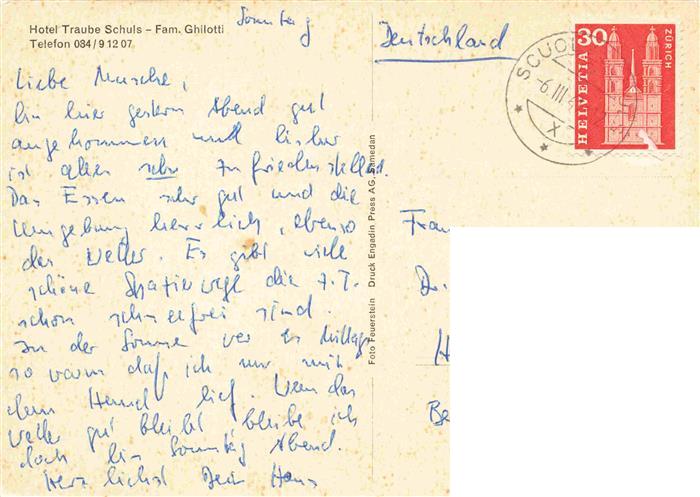 Hotel Traube Schuls – Fam. Ghilotti
Telefon 084/9 12 07
Sonntag
Liebe Musche,
bin hier gestern Abend gut
angekommen und bisher
ist alles sehr zufriedenstellend.
Das Essen sehr gut und die
Umgebung herrlich, ebenso
das Wetter. Es gibt viele
schöne Spazierwege die z.T.
schon schneefrei sind.
In der Sonne war es Mittags
so warm daß ich nur mit
dem Hemd lief. Wenn das
Wetter gut bleibt, bleibe ich
doch bis Sonntag Abend.
Herzlichst Dein Hans
Foto Feuerstein Druck Engadin Press AG, Samedan
Deutschland
SCUOL
-6.III
X
30
HELVETIA
ZÜRICH
Frau
Dr.
H
Be